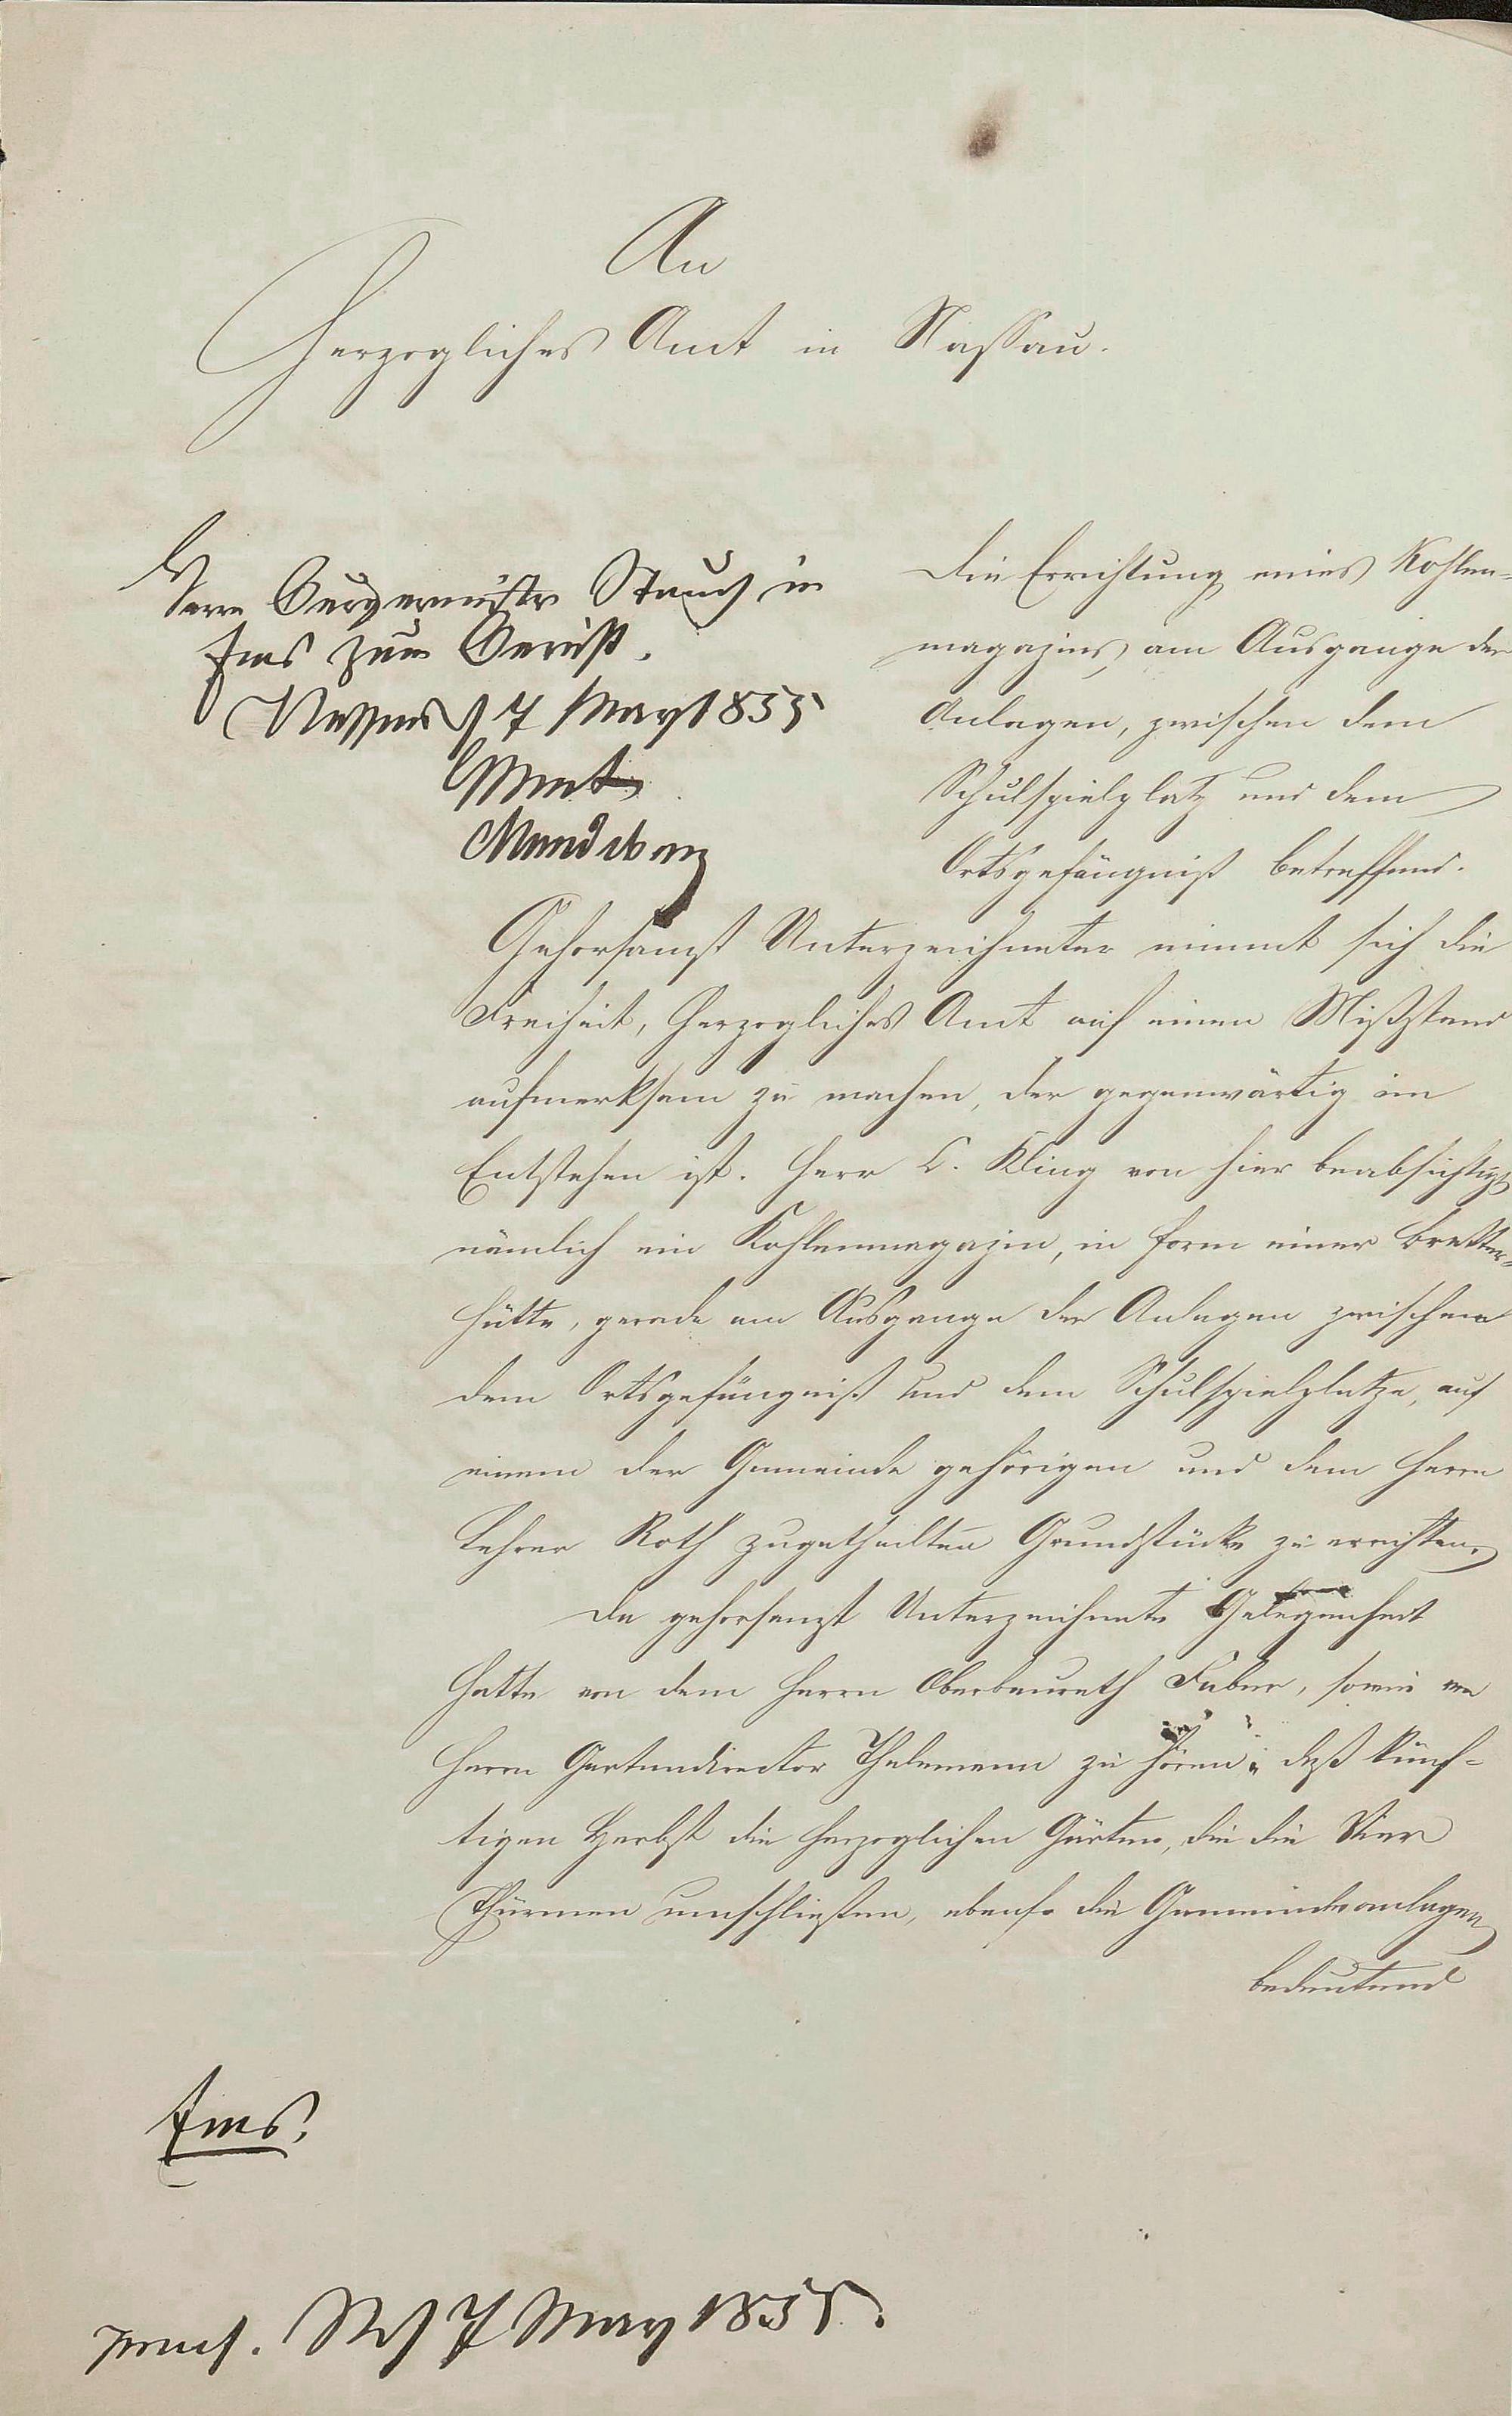 An
Herzogliches Amt in Nassau.
Herrn Bürgermeister Stauch in
Ems zum Bericht.
Nassau d 7 May 1855
Amt
Die Errichtung eines Kohlen-
magazins, am Ausgange der
Anlagen, zwischen dem
Schulspielplatz und dem
Ortsgefängniß betreffend.
Gehorsamst Unterzeichneter nimmt sich die
Freiheit, Herzogliches Amt auf einen Mißstand
aufmerksam zu machen, der gegenwärtig im
Entstehen ist. Herr C. Kling von hier beabsichtigt
nämlich ein Kohlenmagazin, in Form einer Bretter-
hütte, gerade am Ausgange der Anlagen zwischen
dem Ortsgefängniß und dem Schulspielplatze, auf
einem der Gemeinde gehörigen und dem Herrn
Lehrer Roth zugetheilten Grundstücke zu errichten.
Da gehorsamst Unterzeichneter Gelegenheit
hatte von dem Herrn Oberbaurath Faber, sowie von
Herrn Gartendirector Thelemann zu hören, daß künf-
tigen Herbst die Herzoglichen Gärten, die die Vier
Thürmen umschließen, ebenso die Gemeindeanlagen
bedeutend
Ems.
praes. N d 7 May 1855.